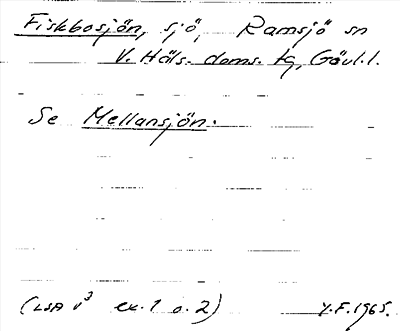 Fiskbosjön, sjö, Ramsjö sn
V. Häls. doms. tg, Gävl. l.
Se Mellansjön.
(LSA V³ ex. 1 o. 2) Y.F. 1965.